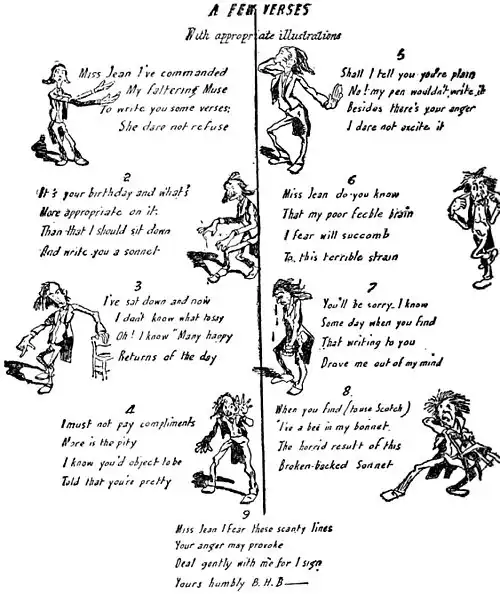 A FEW VERSES
With appropriate illustrations
Miss Jean I've commanded
My faltering Muse
To write you some verses;
She dare not refuse
2
It's your birthday and what's
More appropriate on it:
Than that I should sit down
And write you a sonnet
3
I've sat down and now
I don't know what to say
Oh! I know "Many happy
Returns of the day
4
I must not pay compliments
More is the pity
I know you'd object to be
Told that you're pretty
5
Shall I tell you you're plain
No! my pen wouldn't write it
Besides there's your anger
I dare not excite it
6
Miss Jean do you know
That my poor feeble brain
I fear will succomb
To, this terrible strain
7
You'll be sorry I know
Some day when you find
That writing to you
Drove me out of my mind
8.
When you find (to use Scotch)
"I've a bee in my bonnet.
The horrid result of this
Broken-backed Sonnet
9
Miss Jean I fear these scanty lines
Your anger may provoke
Deal gently with me for I sign
Yours humbly B. H. B—